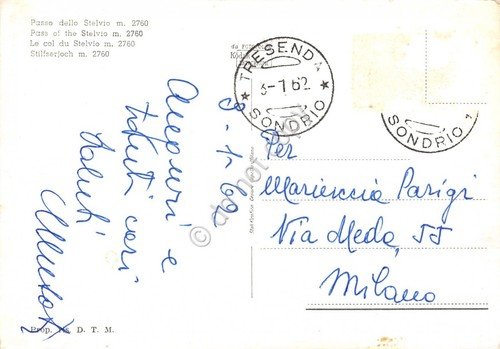 Passo dello Stelvio m. 2760
Pass of the Stelvio m. 2760
Le col du Stelvio m. 2760
Stilfserjoch m. 2760
TRESENDA
3-1 62
SONDRIO
SONDRIO 1
Auguri e
infiniti cari
saluti
Per
Mariuccia Parigi
Via Meda, 55
Milano
do not copy
D. T. M.